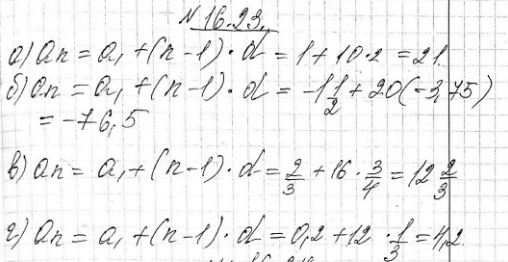 №16.23.
а) an = a₁ + (n-1)·d = 1 + 10·2 = 21.
б) an = a₁ + (n-1)·d = -1 1/2 + 20(-3,75)
= -76,5
в) an = a₁ + (n-1)·d = 2/3 + 16·3/4 = 12 2/3
г) an = a₁ + (n-1)·d = 0,2 + 12·1/3 = 4,2.